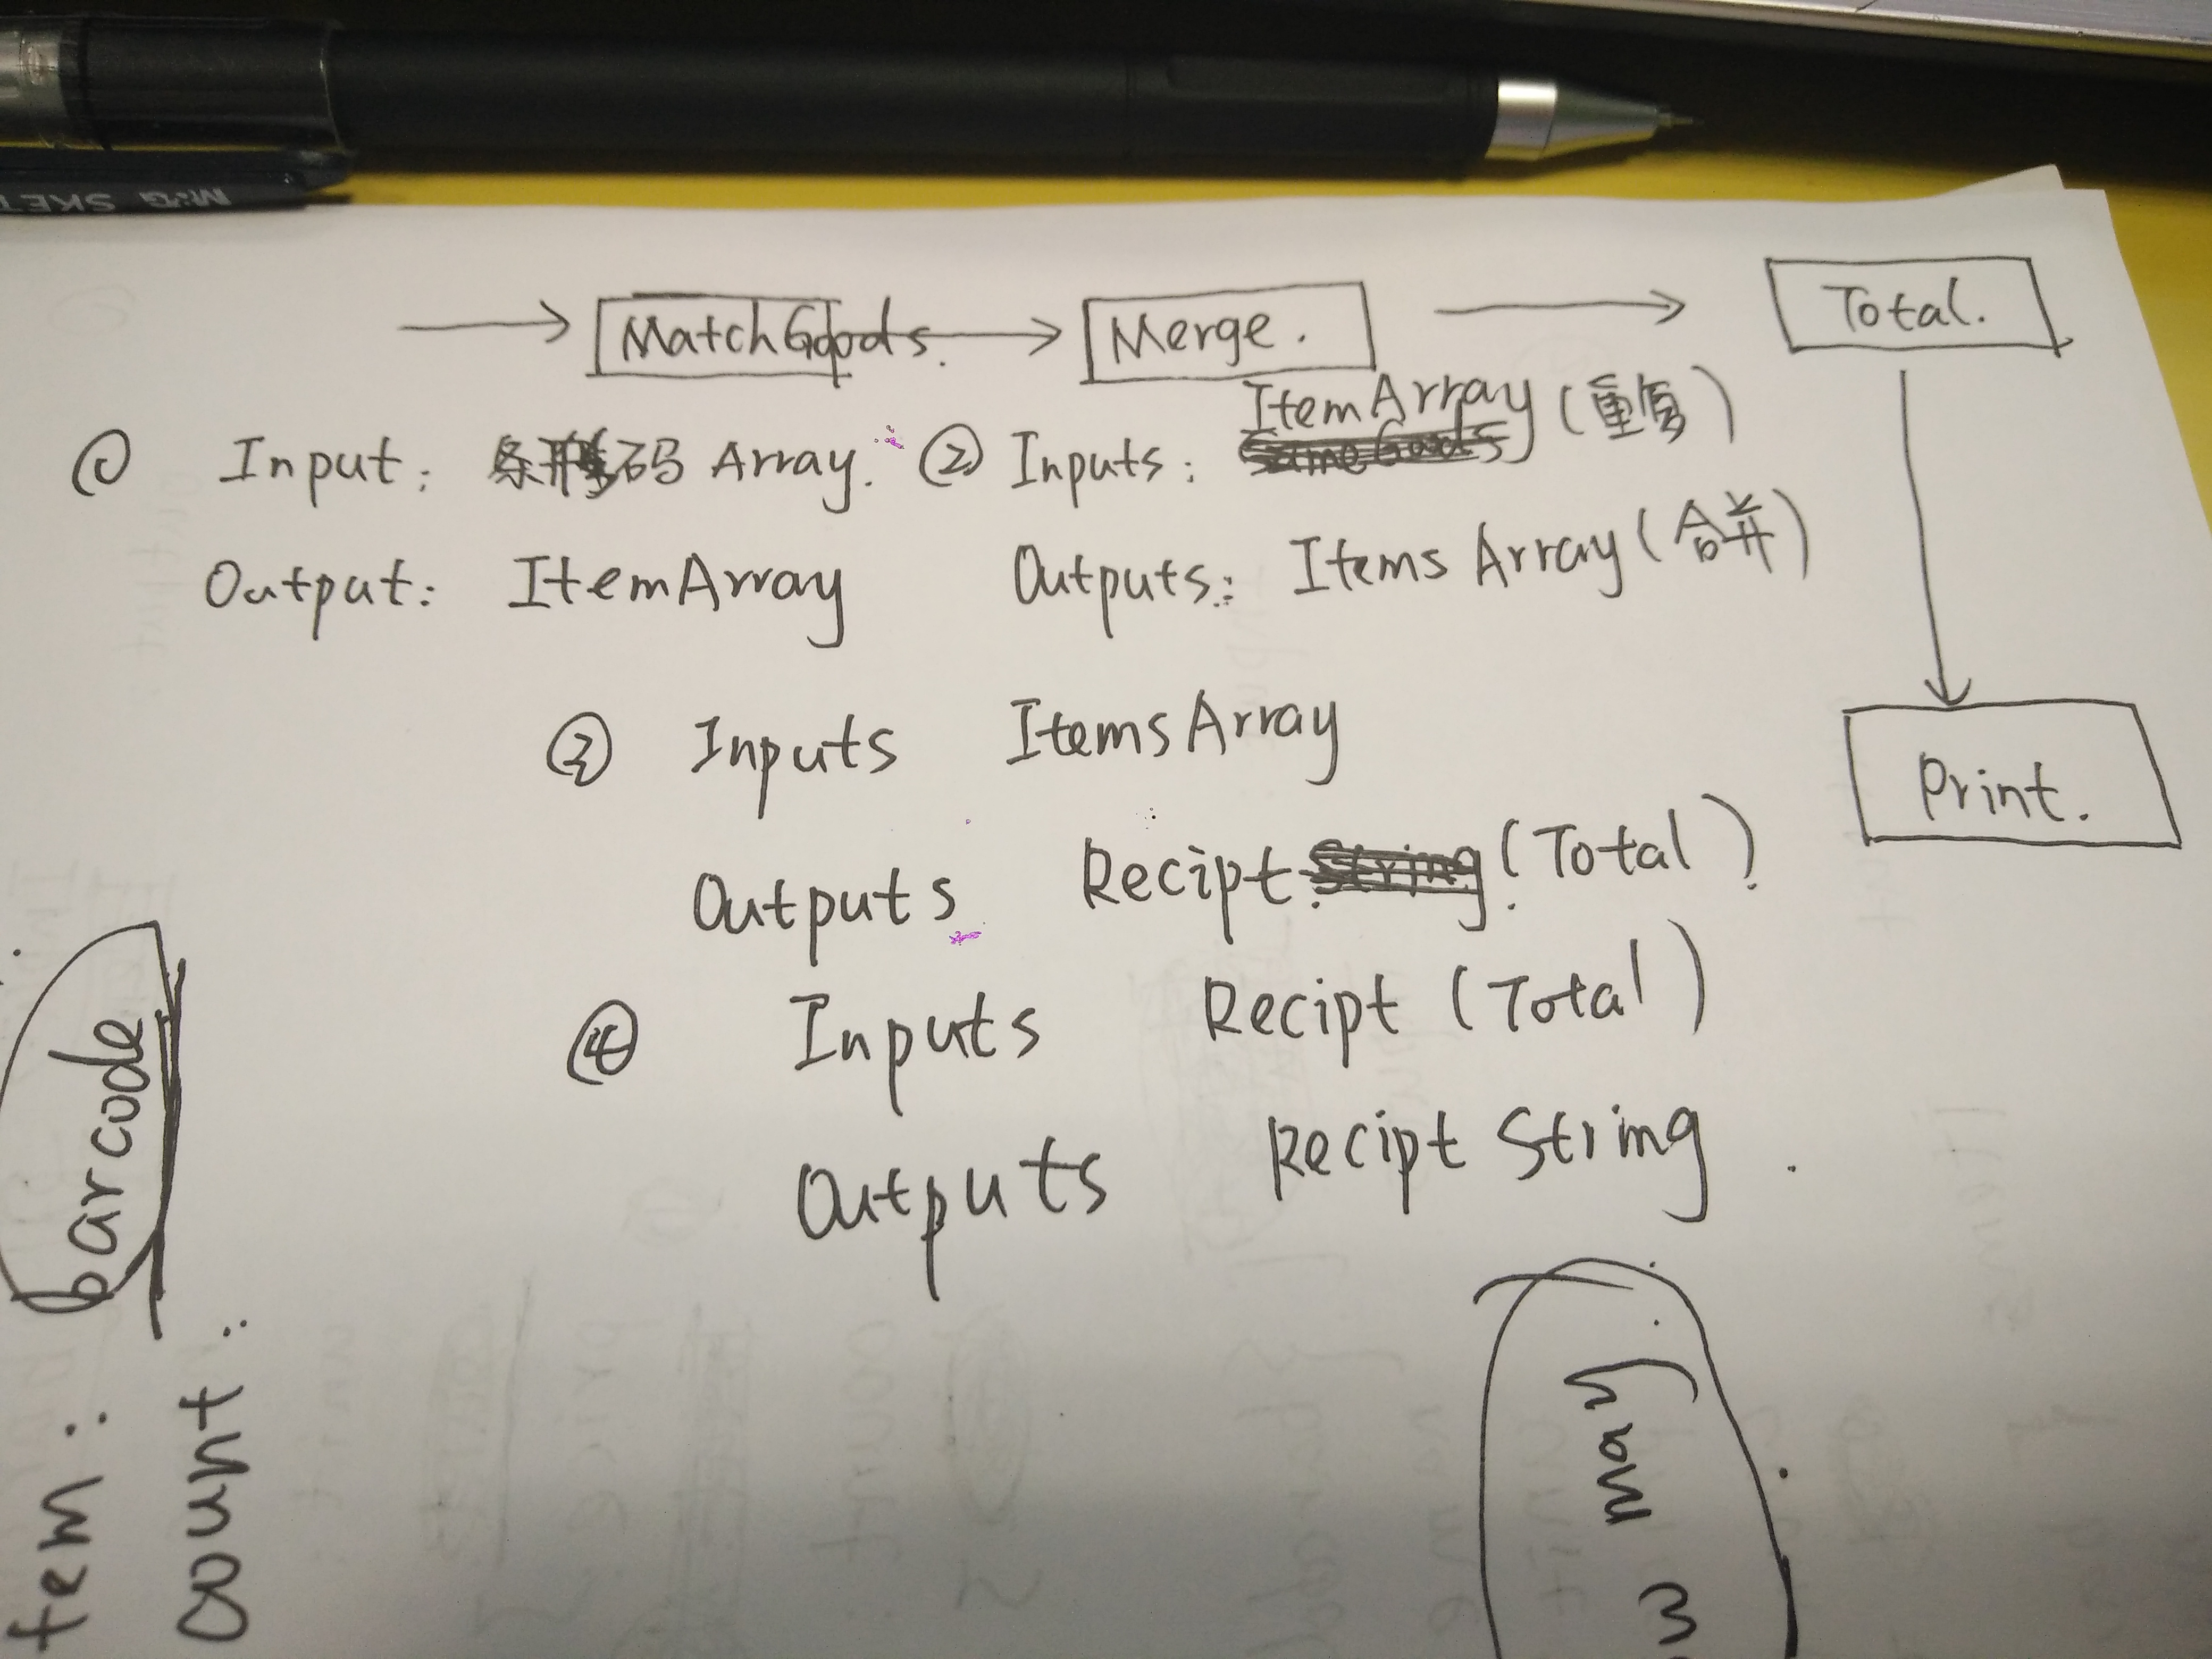 M&G SKET
MatchGoods. Merge. Total.
① Input: 条形码 Array.
Output: ItemArray
② Inputs: ItemArray (重复)
Outputs: Items Array (合并)
Print.
③ Inputs ItemsArray
Outputs Recipt (Total)
④ Inputs Recipt (Total)
Outputs Recipt String
barcode
tem:
count: